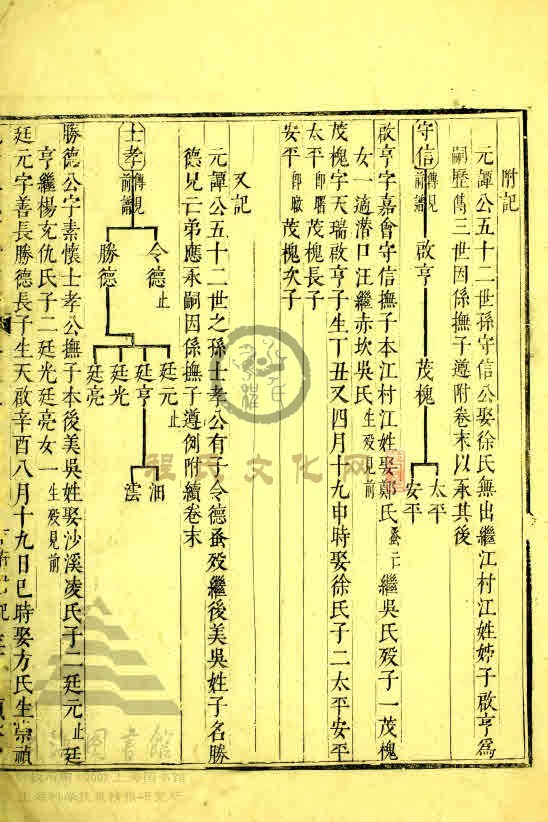 附記
元譚公五十二世孫守信公娶徐氏無出繼江村江姓婷子啟亨為
嗣歷傳三世因係撫子遵附卷末以承其後
守信 傳見前譜 啟亨 茂槐 太平 安平
啟亨字嘉會守信撫子本江村江姓娶鄭氏蚤亡繼吳氏歿子一茂槐
女一適潛口汪繼赤坎吳氏生歿見前
茂槐字天瑞啟亨子生丁丑又四月十九申時娶徐氏子二太平安平
太平 茂槐長子
安平 茂槐次子
又記
元譚公五十二世之孫士孝公有子令德蚤歿繼後美吳姓子名勝
德兄亡弟應永嗣因係撫子遵例附續卷末
士孝 傳見前譜 令德止 勝德 廷元止 廷亨 廷光 廷亮 澐
勝德公字素懷士孝公撫子本後美吳姓娶沙溪凌氏子二廷元止廷
亨繼楊充仇氏子二廷光廷亮女一生歿見前
廷元字善長勝德長子生天啟辛酉八月十九日巳時娶方氏生崇禎
程氏文化网
圖書館